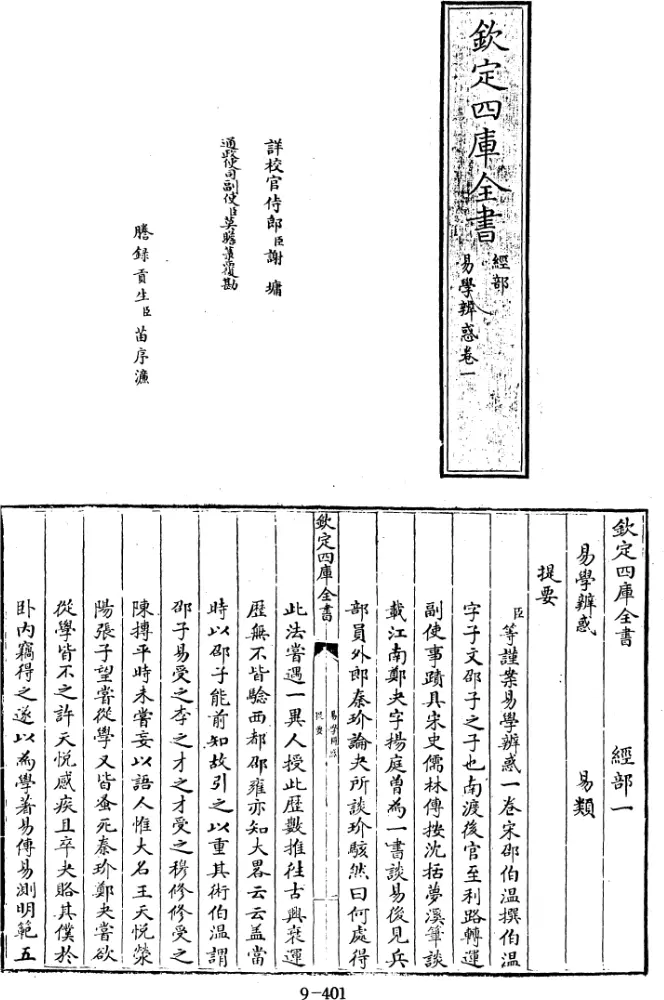 欽定四庫全書
經部
易學辨惑卷一
詳校官侍郎臣謝墉
通政使司副使臣莫瞻菉覆勘
謄錄貢生臣苗序濂
欽定四庫全書
經部一
易學辨惑
易類
提要
臣等謹案易學辨惑一卷宋邵伯温撰伯温
字子文邵子之子也南渡後官至利路轉運
副使事蹟具宋史儒林傳按沈括夢溪筆談
載江南鄭夬字揚庭曽為一書談易後見兵
部員外郎秦玠論夬所談玠駭然曰何處得
欽定四庫全書
易學辨惑
提要
一
此法嘗遇一異人授此歴數推往古興衰運
歴無不皆驗西都邵雍亦知大畧云云葢當
時以邵子能前知故引之以重其術伯温謂
邵子易受之李之才之才受之穆修修受之
陳摶平時未嘗妄以語人惟大名王天悦滎
陽張子望嘗從學又皆蚤死秦玠鄭夬嘗欲
從學皆不之許天悦感疾且卒夬賂其僕於
卧内竊得之遂以為學著易傳易測明範五
9-401